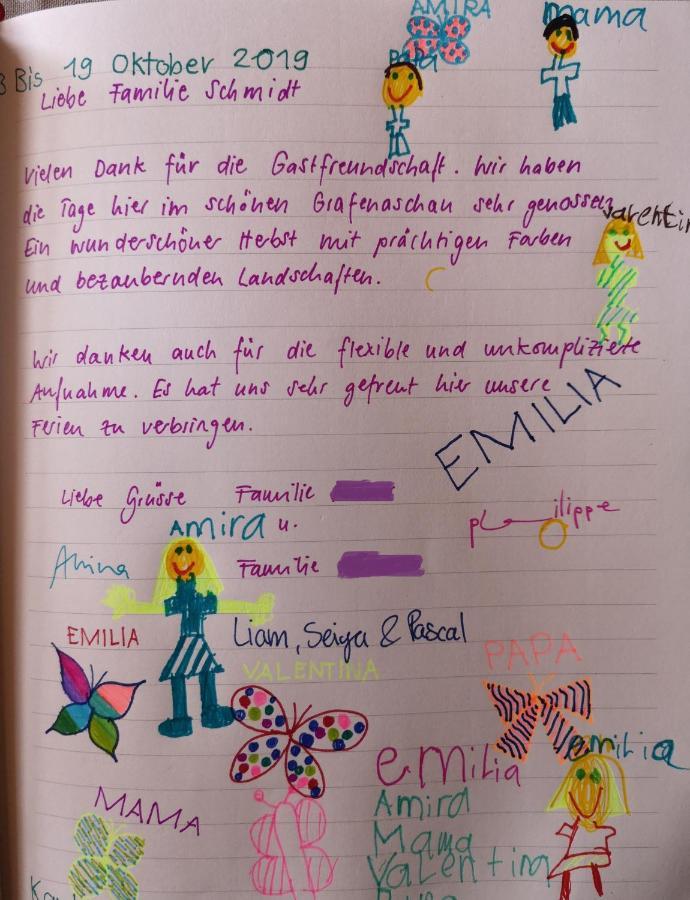 AMIRA
mama
Papa
3 Bis 19 Oktober 2019
Liebe Familie Schmidt
Vielen Dank für die Gastfreundschaft. Wir haben
die Tage hier im schönen Grafenaschau sehr genossen.
Valentin
Ein wunderschöner Herbst mit prächtigen Farben
und bezaubernden Landschaften.
Wir danken auch für die flexible und unkomplizierte
Aufnahme. Es hat uns sehr gefreut hier unsere
Ferien zu verbringen.
EMILIA
Liebe Grüsse Familie
Amira u.
Familie
EMILIA
Liam, Seiya & Pascal
VALENTINA
PAPA
emilia
emilia
MAMA
Amira
Mama
Valentina